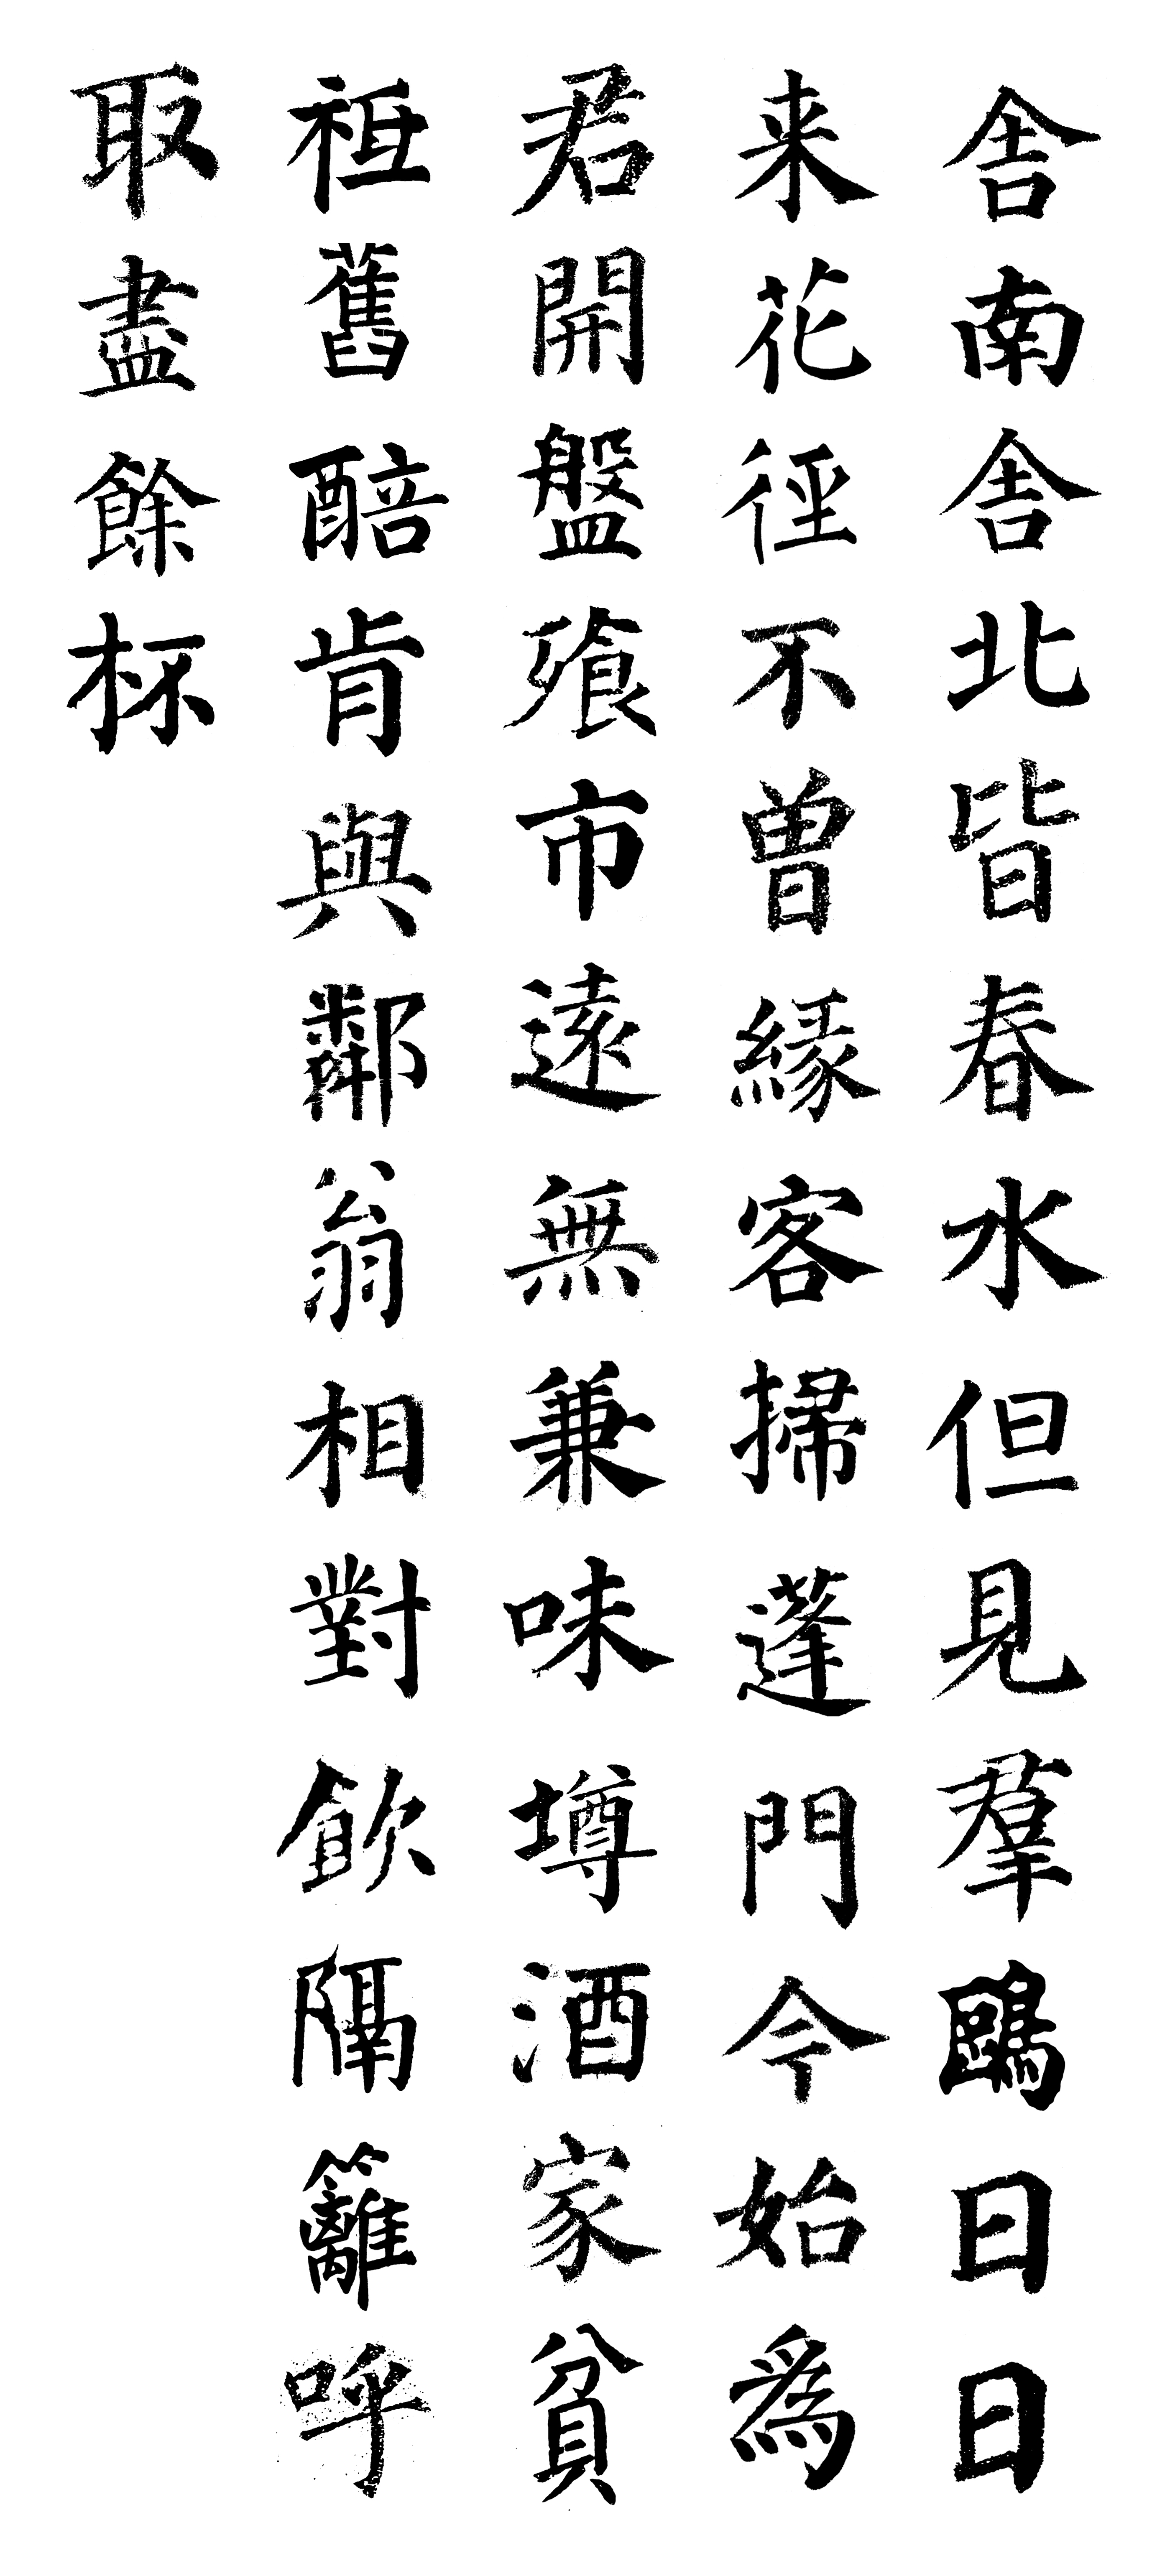 舍南舍北皆春水但見羣鷗日日
来花徑不曽緣客掃蓬門今始爲
君開盤飱市遠無兼味墫酒家貧
袛舊醅肯與鄰翁相對飲隔籬呼
取盡餘杯